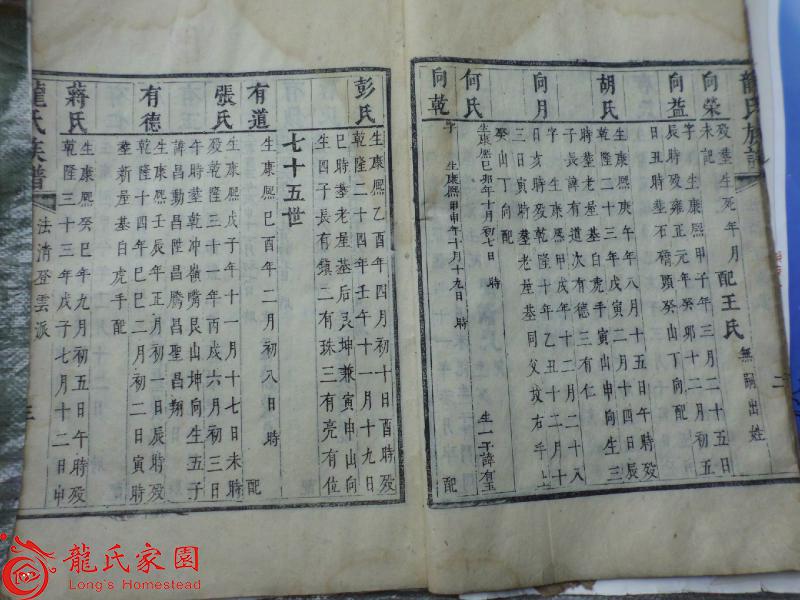 龍氏族譜
二
向榮
歿塟生死年月 配王氏 無嗣出姓
未記
向益
字 生康熙甲子年三月二十五日
辰時歿雍正元年癸卯十二月初五
日時塟石橋頭癸山丁向配
胡氏
生康熙庚午年八月十五日午時歿
乾隆二十三年戊寅二月十四日辰
時塟老屋基白虎手寅山申向生三
子長諱有道次有德三有仁
向月
字 生康熙甲戌年十二月二十八
日亥時歿乾隆十年乙丑十二月十
三日寅時塟老屋基同父坟右手
癸山丁向配
何氏
生康熙己卯年十月初七日 時
生一子諱有玉
向乾
字 生康熙甲申年十月十九日 時
配
彭氏
生康熙乙酉年四月初十日酉時歿
乾隆二十四年壬午十一月十九日
巳時塟老屋基后艮坤兼寅申山向
生四子長有鎮二有珠三有亮有位
七十五世
有道
生康熙己酉年二月初八日 時
配
張氏
生康熙戊子年十一月十七日未時
歿乾隆三十一年丙戌六月初三日
午時塟乾冲嶺嘴艮山坤向生五子
諱昌勳昌陞昌騰昌聖昌翔
有德
生康熙壬辰年正月初一日辰時歿
乾隆十四年己巳三月初二日寅時
塟新屋基白虎手配
蔣氏
生康熙癸巳年九月初五日午時歿
乾隆三十三年戊子七月十二日申
龍氏族譜
法清登雲派
三
龍氏家園
Long's Homestead